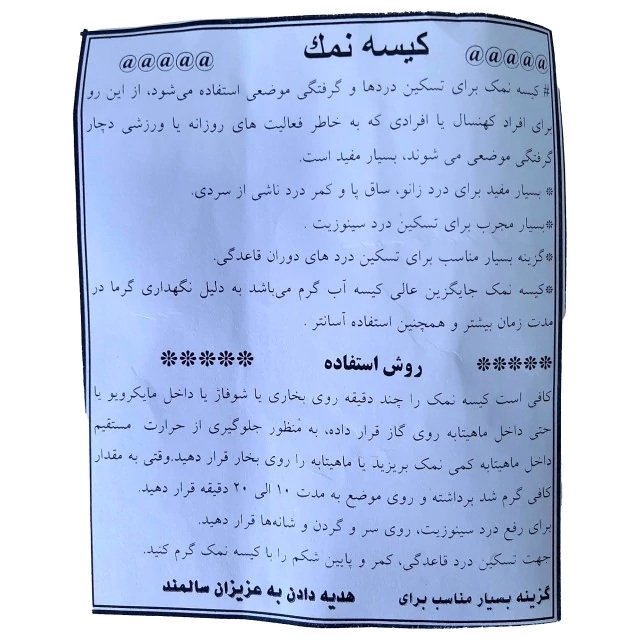 @@@@@ کیسه نمک @@@@@
# کیسه نمک برای تسکین دردها و گرفتگی موضعی استفاده می‌شود، از این رو
برای افراد کهنسال یا افرادی که به خاطر فعالیت های روزانه یا ورزشی دچار
گرفتگی موضعی می شوند، بسیار مفید است.
* بسیار مفید برای درد زانو، ساق پا و کمر درد ناشی از سردی.
*بسیار مجرب برای تسکین درد سینوزیت .
*گزینه بسیار مناسب برای تسکین درد های دوران قاعدگی.
*کیسه نمک جایگزین عالی کیسه آب گرم می‌باشد به دلیل نگهداری گرما در
مدت زمان بیشتر و همچنین استفاده آسانتر .
***** روش استفاده *****
کافی است کیسه نمک را چند دقیقه روی بخاری یا شوفاژ یا داخل مایکرویو یا
حتی داخل ماهیتابه روی گاز قرار داده، به منظور جلوگیری از حرارت مستقیم
داخل ماهیتابه کمی نمک بریزید یا ماهیتابه را روی بخار قرار دهید.وقتی به مقدار
کافی گرم شد برداشته و روی موضع به مدت ۱۰ الی ۲۰ دقیقه قرار دهید.
برای رفع درد سینوزیت، روی سر و گردن و شانه‌ها قرار دهید.
جهت تسکین درد قاعدگی، کمر و پایین شکم را با کیسه نمک گرم کنید.
گزینه بسیار مناسب برای هدیه دادن به عزیزان سالمند